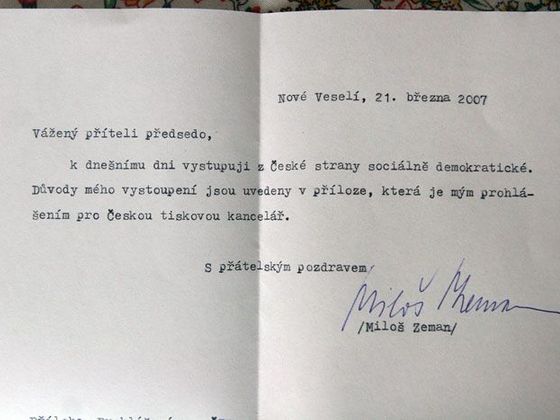 Nové Veselí, 21. března 2007
Vážený příteli předsedo,
k dnešnímu dni vystupuji z České strany sociálně demokratické.
Důvody mého vystoupení jsou uvedeny v příloze, která je mým prohlá-
šením pro Českou tiskovou kancelář.
S přátelským pozdravem
Miloš Zeman
/Miloš Zeman/